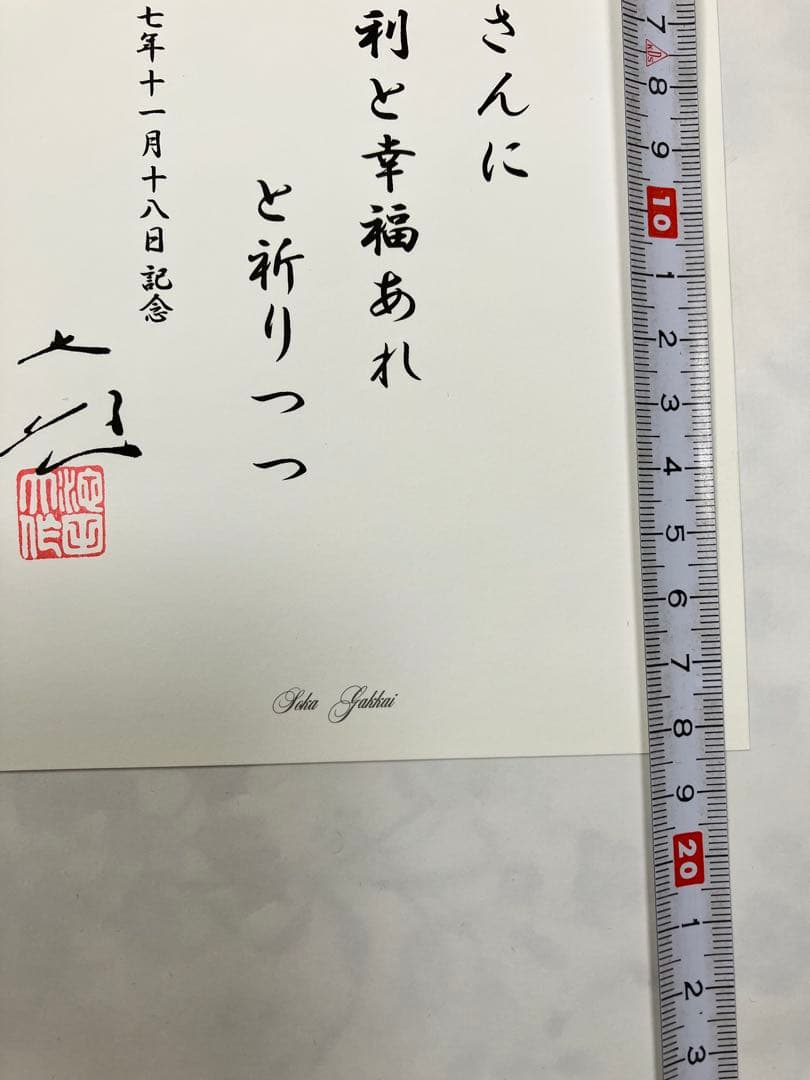 さんに
利と幸福あれ
と祈りつつ
七年十一月十八日記念
池田
大作
Soka Gakkai
7 8 9 10 1 2 3 4 5 6 7 8 9 20 1 2 3
KDS